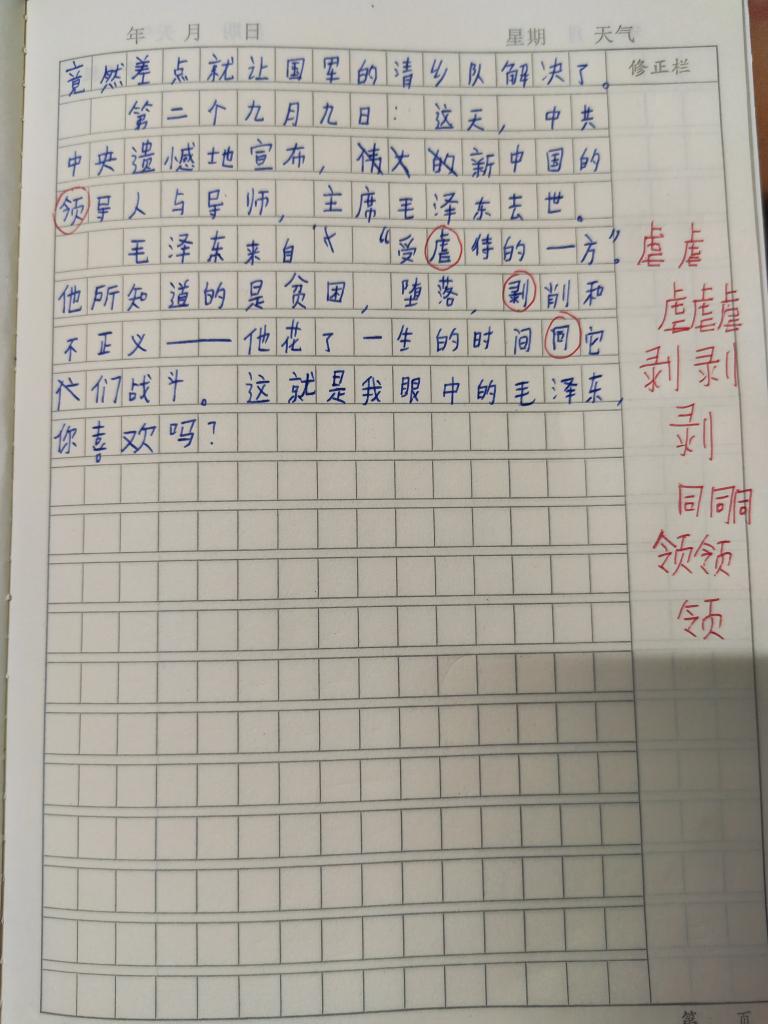 年 月 日 星期 天气
竟然差点就让国军的清乡队解决了。 修正栏
第二个九月九日：这天，中共
中央遗憾地宣布，伟大的新中国的
领导人与导师，主席毛泽东去世。
毛泽东来自“受虐待的一方”。 虐虐
他所知道的是贫困，堕落，剥削和 虐虐虐
不正义——他花了一生的时间同它 剥剥
们战斗。这就是我眼中的毛泽东， 剥
你喜欢吗？
同同同
领领
领
第 页